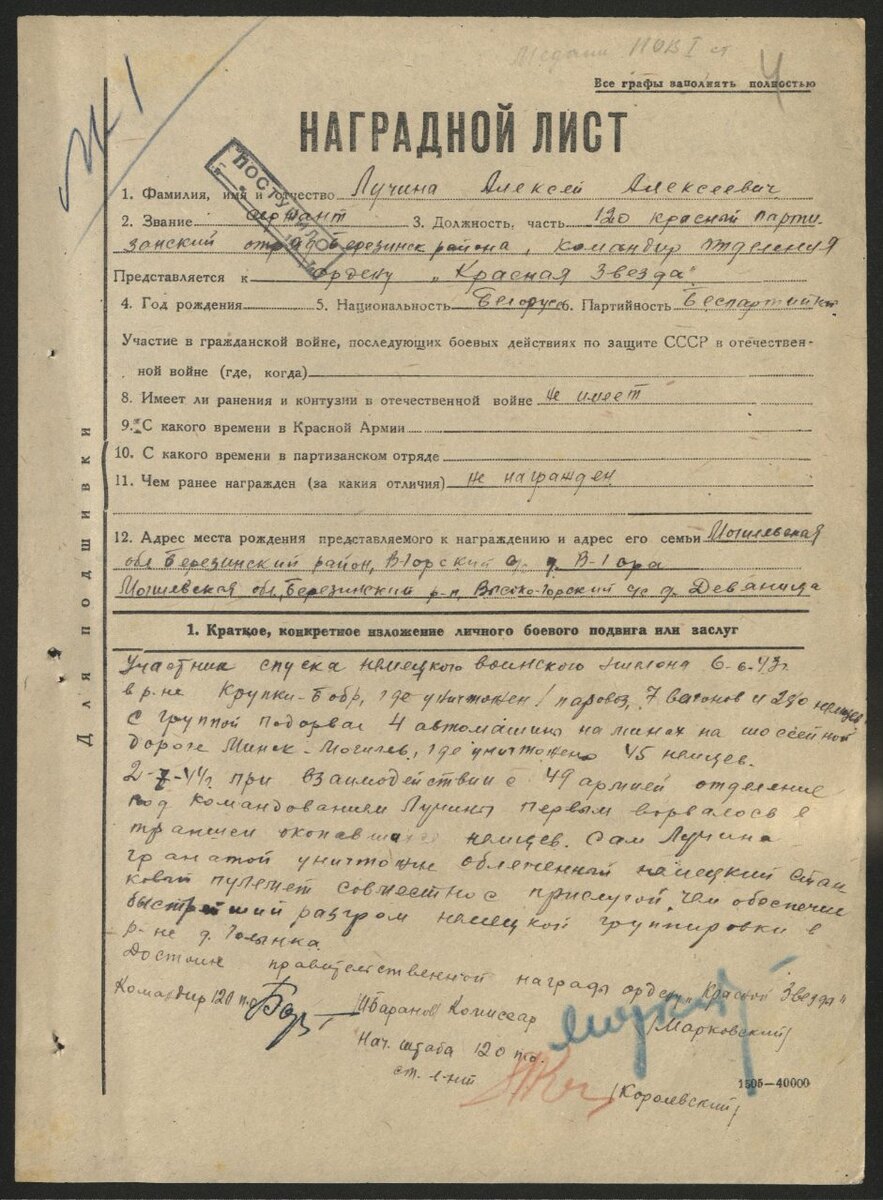 Медаль ПОВ I ст
4
№ 1
Все графы заполнять полностью
НАГРАДНОЙ ЛИСТ
ПОСТУПИЛО
1. Фамилия, имя и отчество Лучина Алексей Алексеевич
2. Звание сержант 3. Должность, часть 120 красный парти-
занский отряд Березинск района, командир отделения
Представляется к ордену „Красная Звезда"
4. Год рождения 5. Национальность Белорусс 6. Партийность Беспартийный
Участие в гражданской войне, последующих боевых действиях по защите СССР в отечествен-
ной войне (где, когда)
8. Имеет ли ранения и контузии в отечественной войне не имеет
9. С какого времени в Красной Армии
10. С какого времени в партизанском отряде
11. Чем ранее награжден (за какия отличия) не награжден
12. Адрес места рождения представляемого к награждению и адрес его семьи Могилевская
обл Березинский район, В-Горский с/с д. В-Гора
Могилевская обл, Березинский р-н, Высоко-Горский с/с д. Деваница
Для подшивки
1. Краткое, конкретное изложение личного боевого подвига или заслуг
Участник спуска немецкого воинского эшелона 6-6-43г
в р-не Крупки-Бобр, где уничтожен 1 паровоз, 7 вагонов и немцев
С группой подорвал 4 автомашины на минах на шоссейной
дороге Минск-Могилев, где уничтожено 45 немцев.
2-7-44г. при взаимодействии с 49 армией отделение
под командованием Лучины первым ворвалось в
траншеи окопавшихся немцев. Сам Лучина
гранатой уничтожил немецкий стан
ковый пулемет совместно с прислугой, чем обеспечил
быстрейший разгром немецкой группировки в
р-не д. Голынка.
Достоин правительственной награды орден „Красной Звезды"
Командир 120 п.о. /Баранов/ Комиссар /Марковский/
Нач. штаба 120 п.о.
ст. л-нт /Королевский/
1505—40000